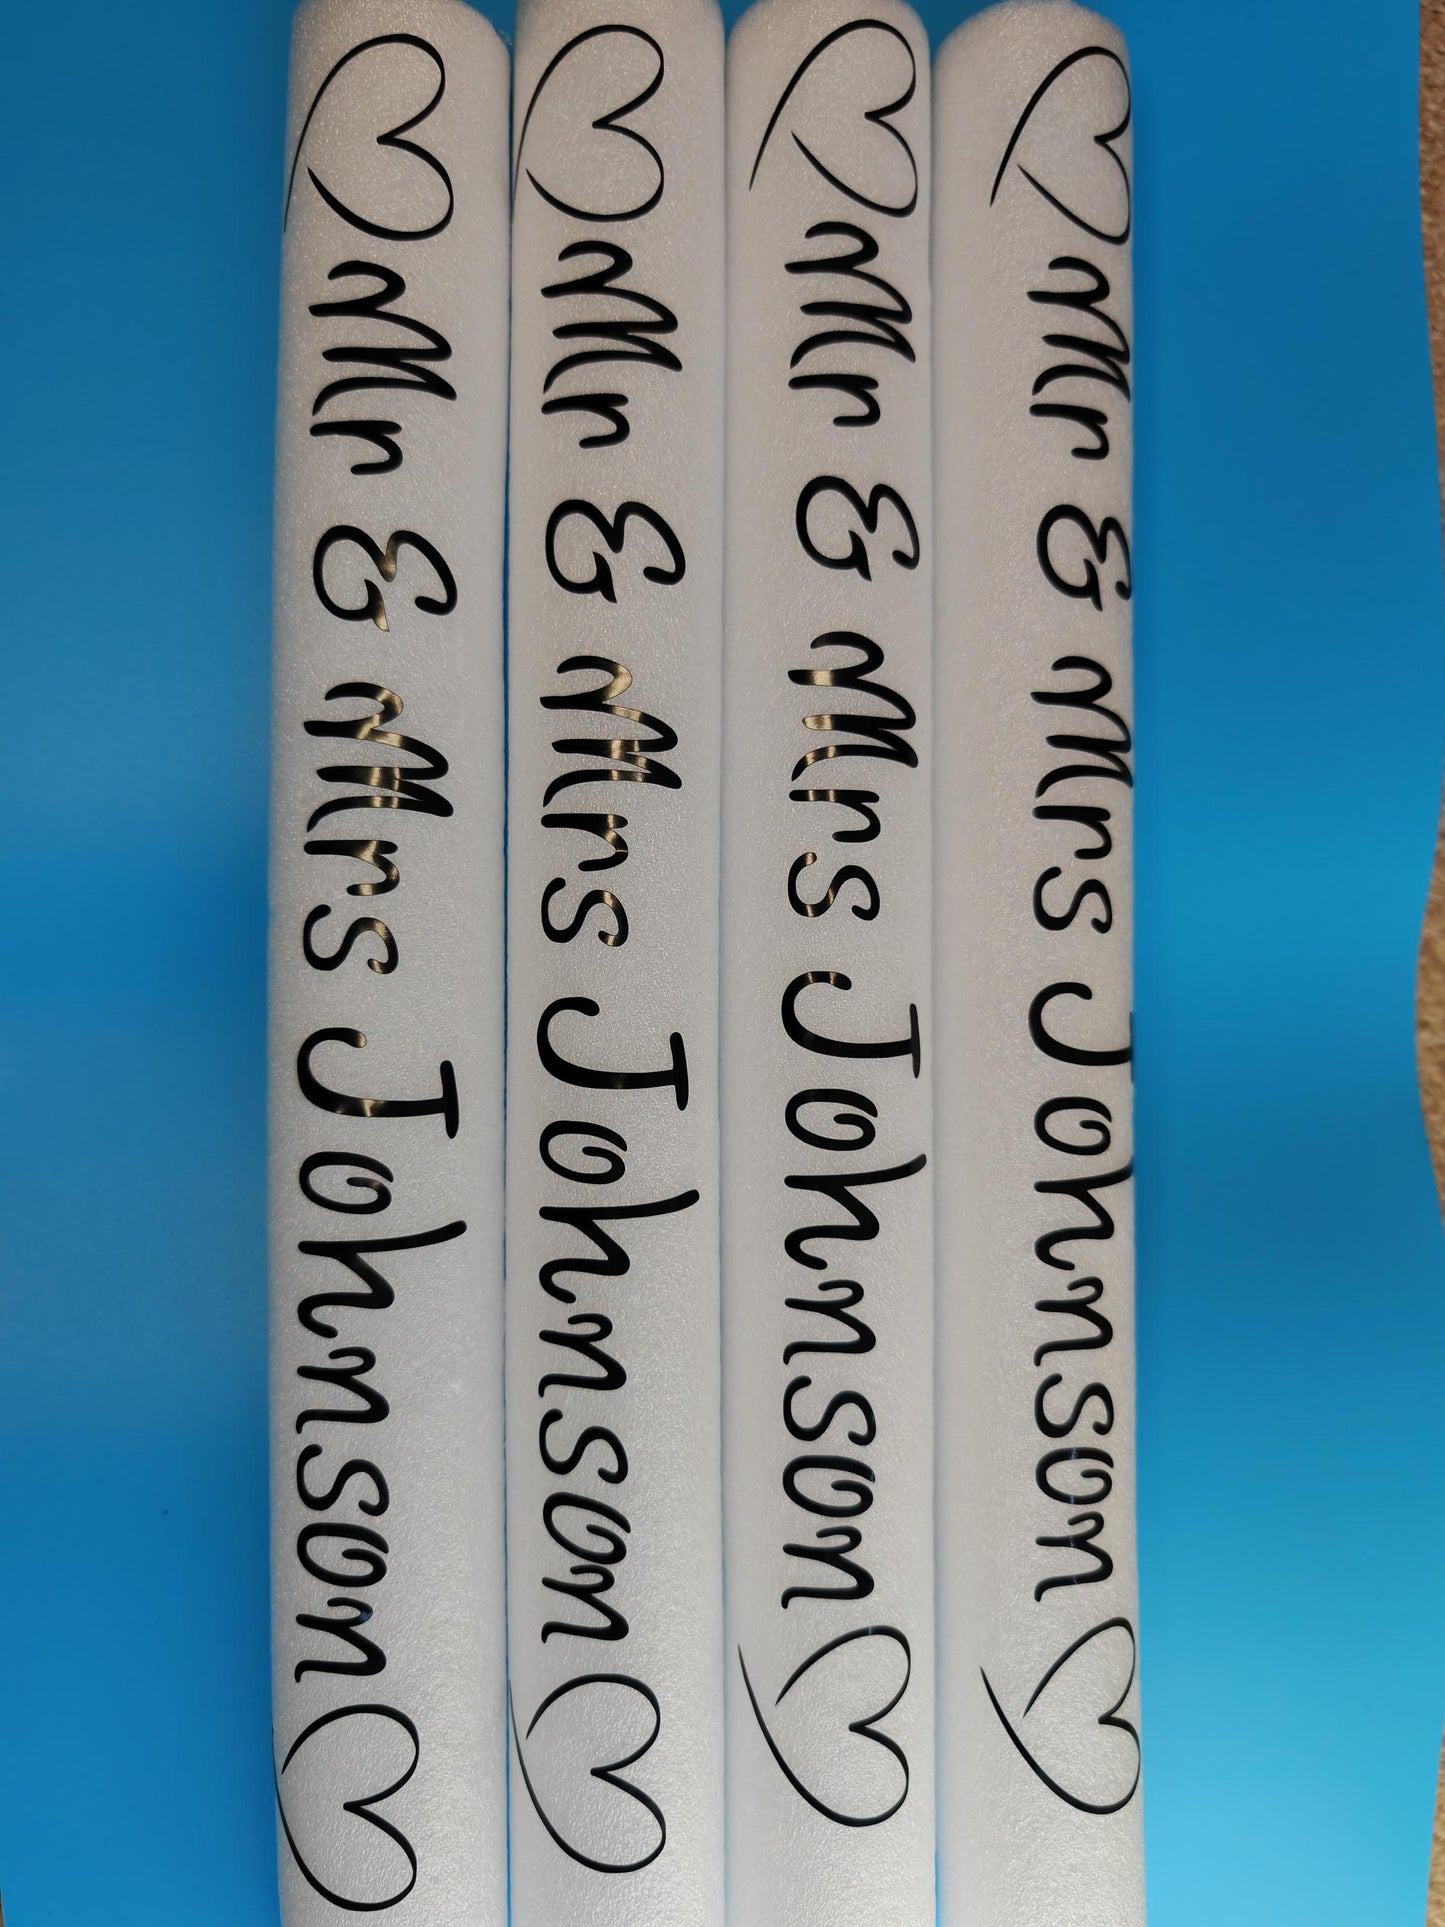 Mr & Mrs Johnson
Mr & Mrs Johnson
Mr & Mrs Johnson
Mr & Mrs Johnson